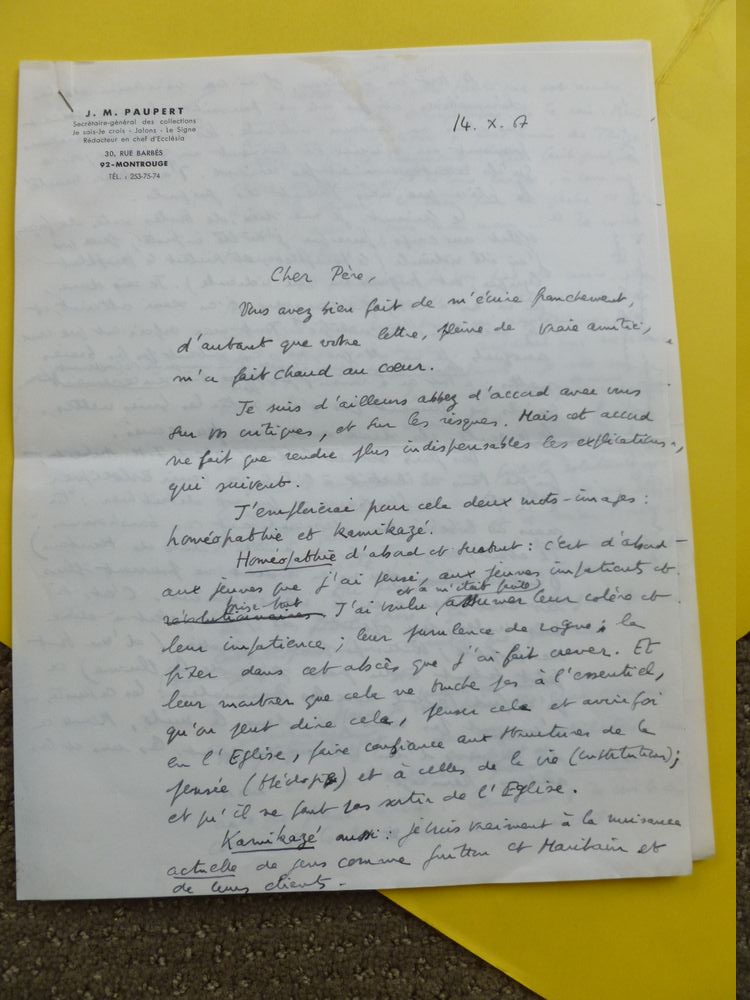 J. M. PAUPERT
Secrétaire-général des collections
Je sais-Je crois - Jalons - Le Signe
Rédacteur en chef d'Ecclésia
30, RUE BARBÈS
92-MONTROUGE
TÉL. : 253-75-74
14. X. 67
Cher Père,
Vous avez bien fait de m'écrire franchement,
d'autant que votre lettre, pleine de vraie amitié,
m'a fait chaud au cœur.
Je suis d'ailleurs assez d'accord avec vous
sur vos critiques, et sur les risques. Mais cet accord
ne fait que rendre plus indispensables les explications,
qui suivent.
J'emploierai pour cela deux mots-images :
homéopathie et kamikazé.
Homéopathie d'abord et surtout : c'est d'abord
aux jeunes que j'ai pensé, aux jeunes impatients et
et à m'était prête
prise-tout
révolutionnaires J'ai voulu assumer leur colère et
leur impatience ; leur purulence de rogne ; la
fixer dans cet abcès que j'ai fait crever. Et
leur montrer que cela ne touche pas à l'essentiel,
qu'on peut dire cela, penser cela et avoir foi
en l'Eglise, faire confiance aux structures de la
pensée (théologie) et à celles de la vie (institution) ;
et qu'il ne faut pas sortir de l'Eglise.
Kamikazé aussi : je crois vraiment à la nuisance
actuelle de gens comme Guitton et Maritain et
de leurs clients.